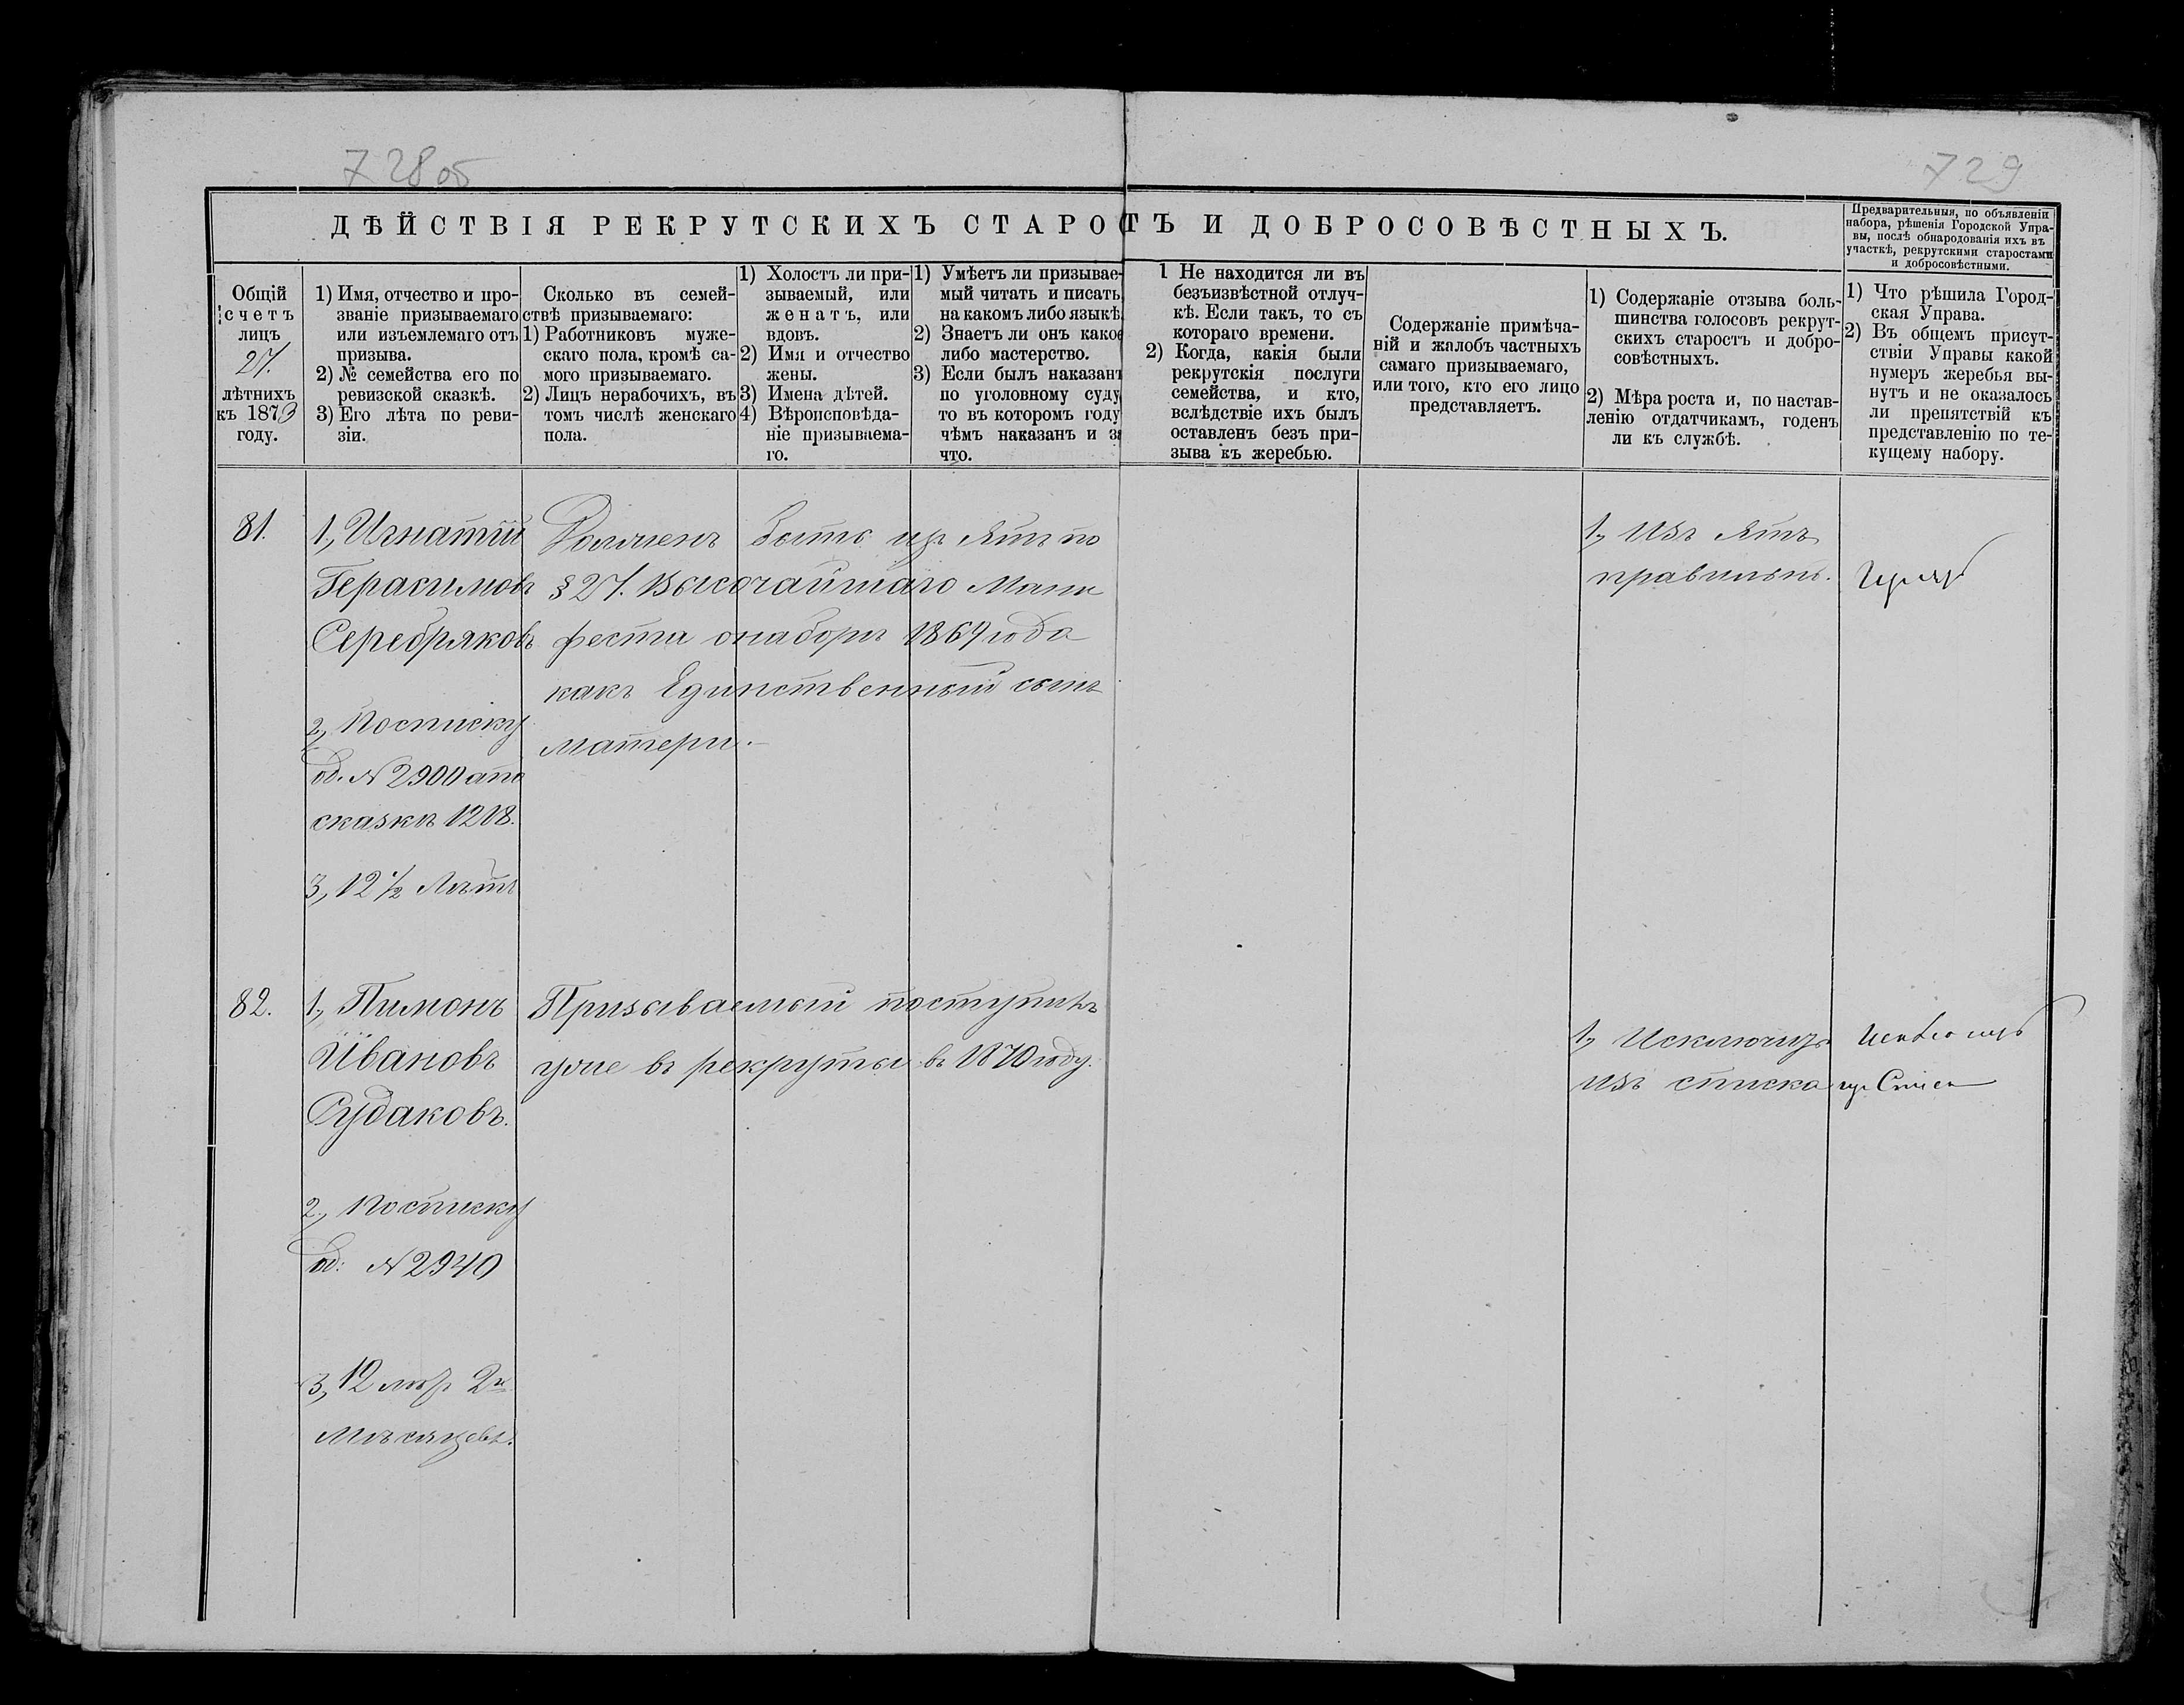 728об
729
ДѢЙСТВІЯ РЕКРУТСКИХЪ СТАРОСТЪ И ДОБРОСОВѢСТНЫХЪ.
Предварительныя, по объявленіи
набора, рѣшенія Городской Упра-
вы, послѣ обнародованія ихъ въ
участкѣ, рекрутскими старостами
и добросовѣстными.
Общій
счетъ
лицъ
27.
лѣтнихъ
къ 1873
году.
1) Имя, отчество и про-
званіе призываемаго
или изъемлемаго отъ
призыва.
2) № семейства его по
ревизской сказкѣ.
3) Его лѣта по реви-
зіи.
Сколько въ семей-
ствѣ призываемаго:
1) Работниковъ муже-
скаго пола, кромѣ са-
мого призываемаго.
2) Лицъ нерабочихъ, въ
томъ числѣ женскаго
пола.
1) Холостъ ли при-
зываемый, или
женатъ, или
вдовъ.
2) Имя и отчество
жены.
3) Имена дѣтей.
4) Вѣроисповѣда-
ніе призываема-
го.
1) Умѣетъ ли призывае-
мый читать и писать,
на какомъ либо языкѣ.
2) Знаетъ ли онъ какое
либо мастерство.
3) Если былъ наказанъ
по уголовному суду
то въ которомъ году
чѣмъ наказанъ и за
что.
1 Не находится ли въ
безъизвѣстной отлуч-
кѣ. Если такъ, то съ
котораго времени.
2) Когда, какія были
рекрутскія послуги
семейства, и кто,
вслѣдствіе ихъ былъ
оставленъ безъ при-
зыва къ жеребью.
Содержаніе примѣча-
ній и жалобъ частныхъ
самаго призываемаго,
или того, кто его лицо
представляетъ.
1) Содержаніе отзыва боль-
шинства голосовъ рекрут-
скихъ старостъ и добро-
совѣстныхъ.
2) Мѣра роста и, по настав-
ленію отдатчикамъ, годенъ
ли къ службѣ.
1) Что рѣшила Город-
ская Управа.
2) Въ общемъ присут-
ствіи Управы какой
нумеръ жеребья вы-
нутъ и не оказалось
ли препятствій къ
представленію по те-
кущему набору.
81.
1, Игнатій
Герасимовъ
Серебряковъ
2, По списку
од. № 2900 а по
сказкѣ 1218.
3, 12 ½ Лѣтъ
Долженъ быть изъятъ по
§ 27. Высочайшаго Мани
феста о наборѣ 1869 года
какъ Единственный сынъ
матери.
1, Изъятъ
правильно.
82.
1, Пимонъ
Ивановъ
Судаковъ.
2, По списку
од: № 2940
3, 12 лѣтъ 2хъ
Мѣсяцевъ.
Призываемый поступилъ
уже въ рекруты въ 1870 году.
1, Исключить
изъ списка